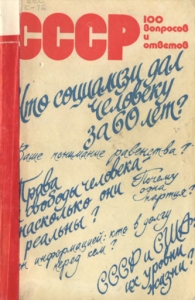 СССР
100
вопросов
и
ответов
Что социализм дал
человеку
за 60 лет?
Ваше понимание равенства?
Права
и свободы человека
насколько они
реальны?
Почему
одна
партия?
с информацией: кто в долгу
перед кем?
СССР и США:
их уровни
жизни?